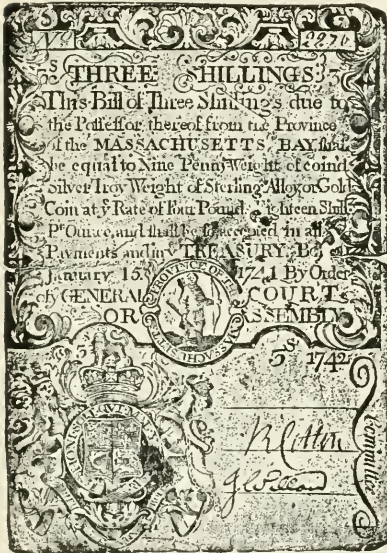 No 2276
3s THREE SHILLINGS 3s
This Bill of Three Shillings due to
the Possessor thereof from the Province
of the MASSACHUSETTS BAY shall
be equal to Nine Penny Weight of coind
Silver Troy Weight of Sterling Alloy or Gold
Coin at ye Rate of Four Pound Eighteen Shill
Pr Ounce, and shall be so accepted in all
Payments and in ye TREASURY Boston
January 15 1741 By Order
of ye GENERAL COURT
OR ASSEMBLY
PROVINCE OF THE MASSACHUSETTS
3s 1742
HONI SOIT QUI MAL Y PENSE
Committee